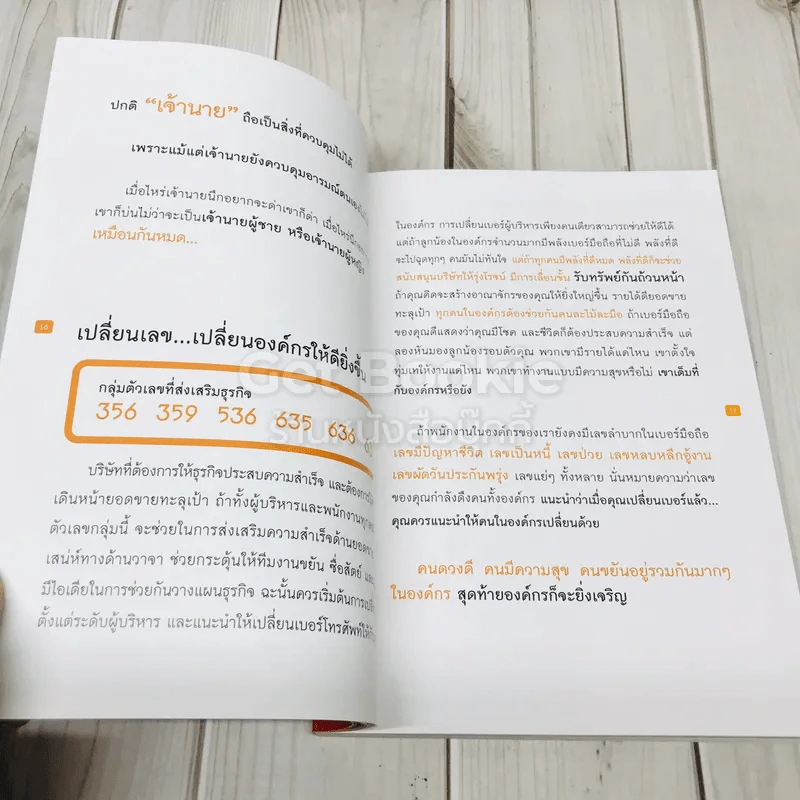 ปกติ “เจ้านาย” ถือเป็นสิ่งที่ควบคุมไม่ได้
เพราะแม้แต่เจ้านายยังควบคุมอารมณ์ตนเอง
เมื่อไหร่เจ้านายนึกอยากจะด่าเขาก็ด่า เมื่อไหร่นึก
เขาก็บ่นไม่ว่าจะเป็นเจ้านายผู้ชาย หรือเจ้านายผู้หญิง
เหมือนกันหมด...
16
เปลี่ยนเลข...เปลี่ยนองค์กรให้ดียิ่งขึ้น
กลุ่มตัวเลขที่ส่งเสริมธุรกิจ
356 359 536 635 636
บริษัทที่ต้องการให้ธุรกิจประสบความสำเร็จ และต้องการ
เดินหน้ายอดขายทะลุเป้า ถ้าทั้งผู้บริหารและพนักงาน
ตัวเลขกลุ่มนี้ จะช่วยในการส่งเสริมความสำเร็จด้านยอดขาย
เสน่ห์ทางด้านวาจา ช่วยกระตุ้นให้ทีมงานขยัน ซื่อสัตย์
มีไอเดียในการช่วยกันวางแผนธุรกิจ ฉะนั้นควรเริ่มต้นการ
ตั้งแต่ระดับผู้บริหาร และแนะนำให้เปลี่ยนเบอร์โทรศัพท์ให้
ในองค์กร การเปลี่ยนเบอร์ผู้บริหารเพียงคนเดียวสามารถช่วยให้ดีได้
แต่ถ้าลูกน้องในองค์กรจำนวนมากมีพลังเบอร์มือถือที่ไม่ดี พลังที่ดี
จะไปฉุดทุกๆ คนมันไม่ทันใจ แต่ถ้าทุกคนมีพลังที่ดีหมด พลังที่ดีก็จะช่วย
สนับสนุนบริษัทให้รุ่งโรจน์ มีการเลื่อนขั้น รับทรัพย์กันถ้วนหน้า
ถ้าคุณคิดจะสร้างอาณาจักรของคุณให้ยิ่งใหญ่ขึ้น รายได้ดียอดขาย
ทะลุเป้า ทุกคนในองค์กรต้องช่วยกันคนละไม้ละมือ ถ้าเบอร์มือถือ
ของคุณดีแสดงว่าคุณมีโชค และชีวิตก็ต้องประสบความสำเร็จ แต่
ลองหันมองลูกน้องรอบตัวคุณ พวกเขามีรายได้แค่ไหน เขาตั้งใจ
ทุ่มเทให้งานแค่ไหน พวกเขาทำงานแบบมีความสุขหรือไม่ เขาเต็มที่
กับองค์กรหรือยัง
17
ถ้าพนักงานในองค์กรของเรายังคงมีเลขลำบากในเบอร์มือถือ
เลขมีปัญหาชีวิต เลขเป็นหนี้ เลขป่วย เลขหลบหลีกอู้งาน
เลขผัดวันประกันพรุ่ง เลขแย่ๆ ทั้งหลาย นั่นหมายความว่าเลข
ของคุณกำลังดึงคนทั้งองค์กร แนะนำว่าเมื่อคุณเปลี่ยนเบอร์แล้ว...
คุณควรแนะนำให้คนในองค์กรเปลี่ยนด้วย
คนดวงดี คนมีความสุข คนขยันอยู่รวมกันมากๆ
ในองค์กร สุดท้ายองค์กรก็จะยิ่งเจริญ
Got Bookie
ร้านหนังสือบุ๊กกี้